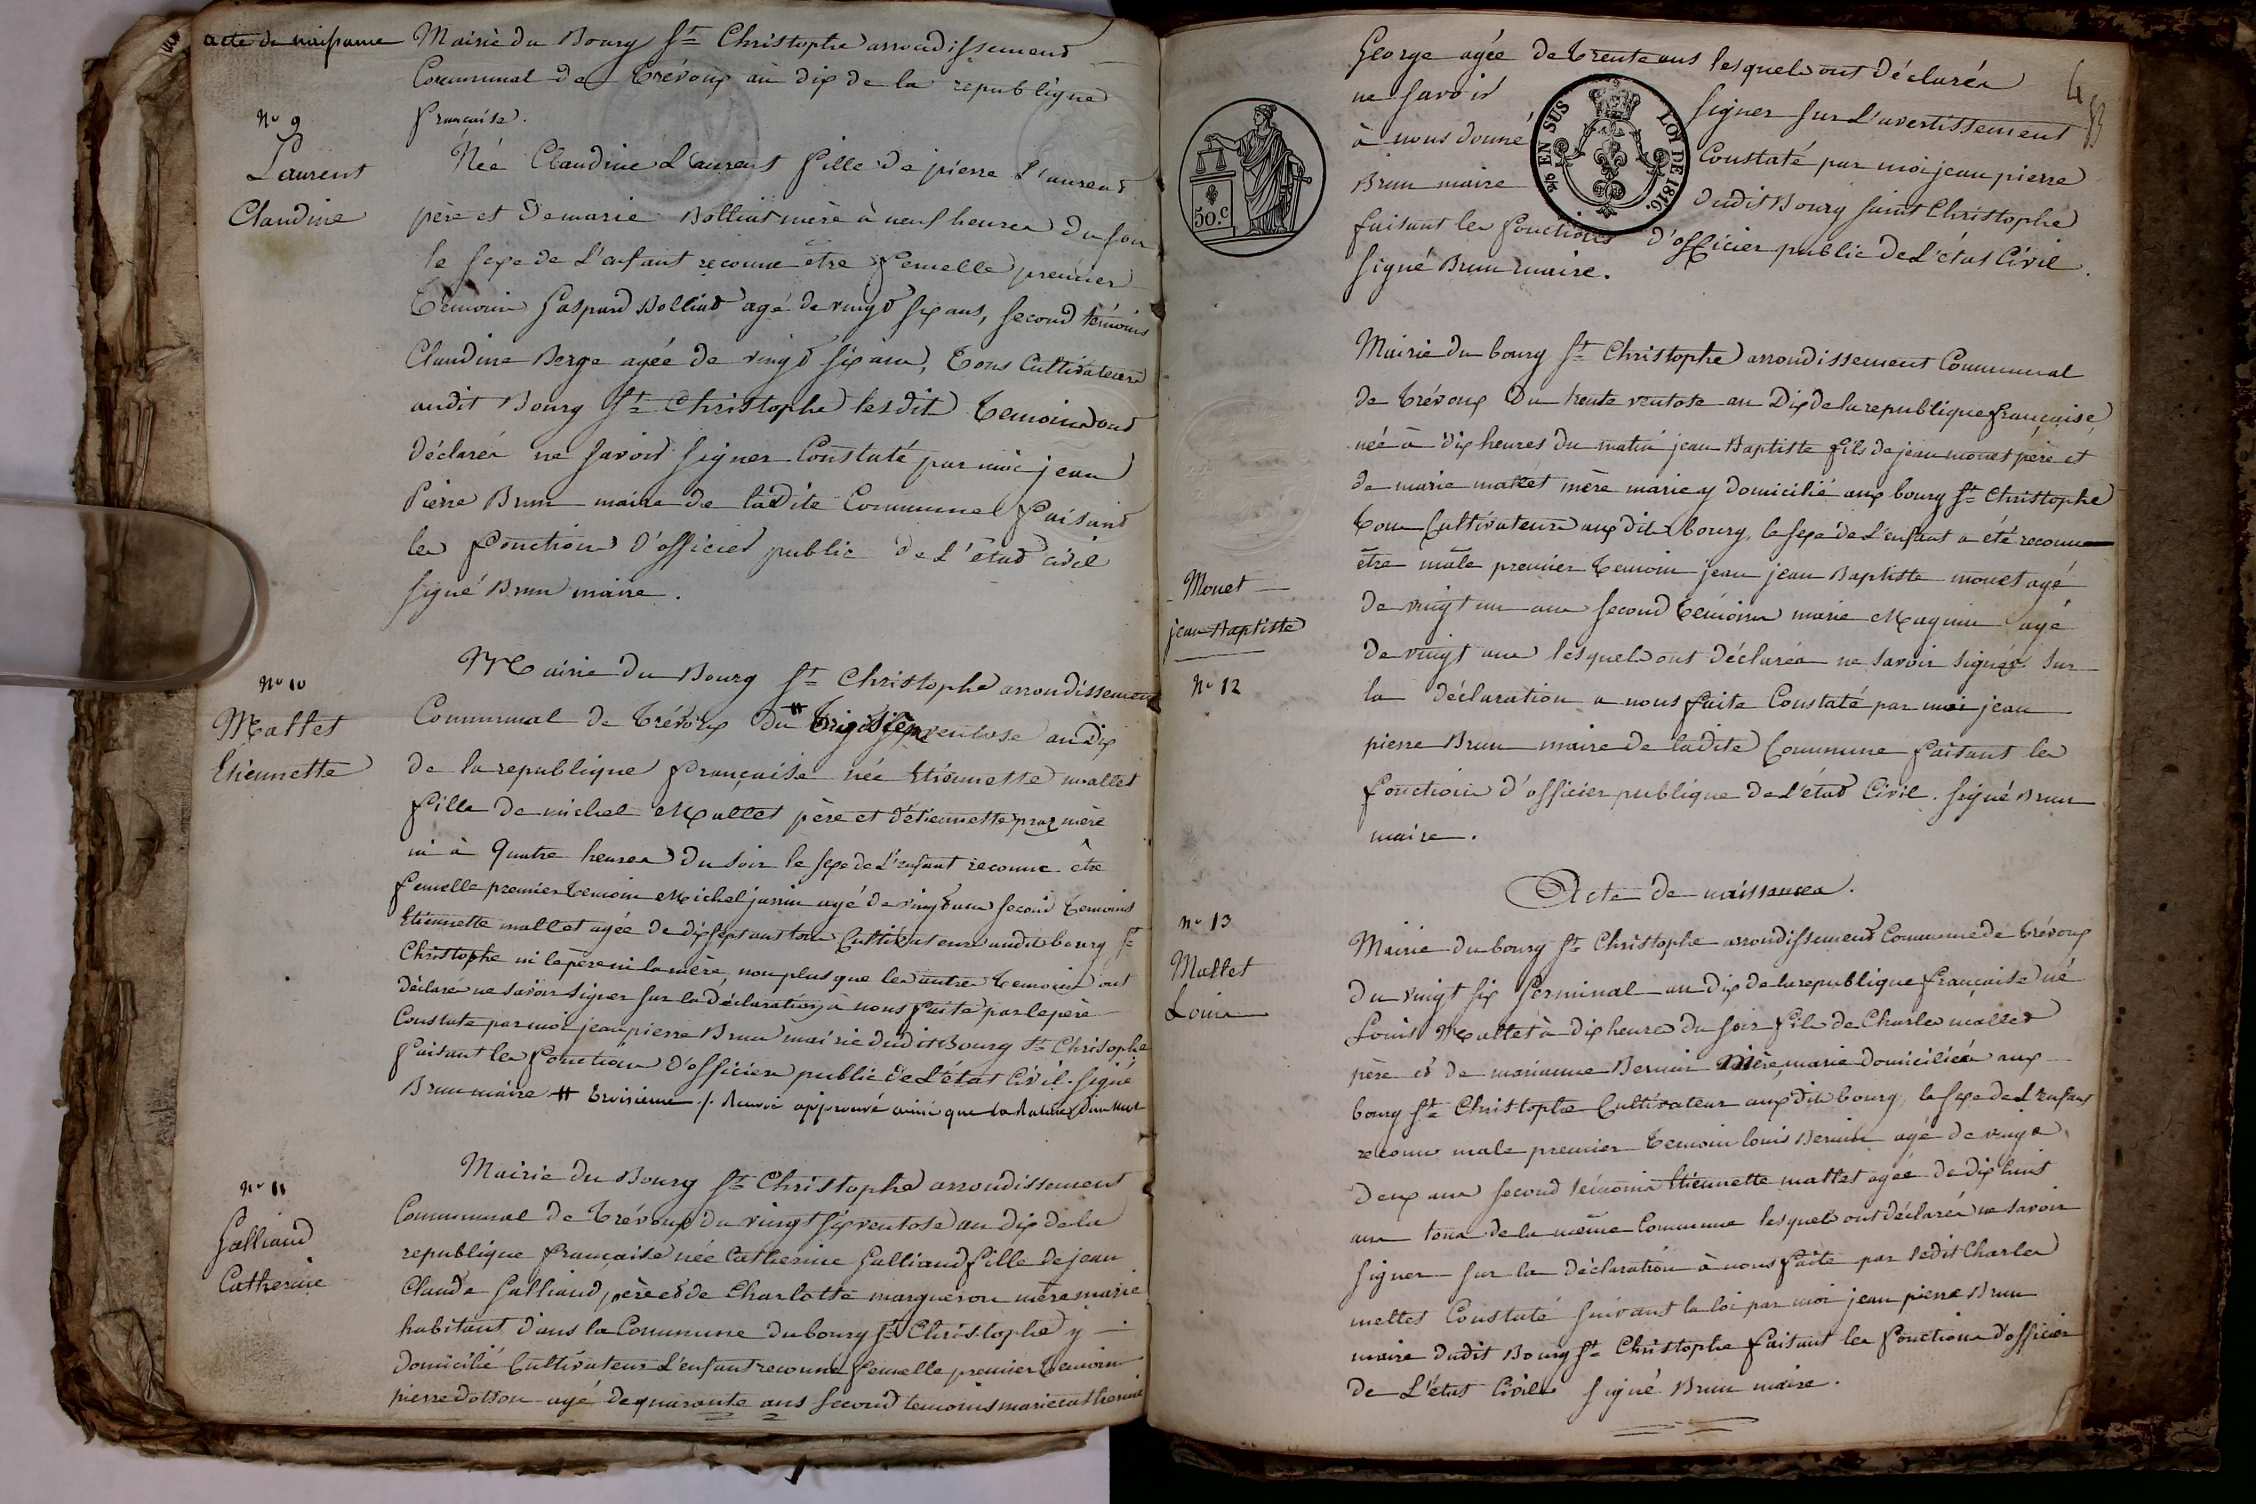 acte de naissance
Mairie du Bourg St Christophe arrondissement
Communal de Trévoux an dix de la republique
française.
No 9
Laurent
Claudine
Née Claudine Laurent fille de pierre Laurent
père et de marie Bolliat mère à neuf heures du soir
le sexe de l'enfant reconnu être femelle premier
Temoin Gaspard Bolliat agé de vingt six ans, second témoins
Claudine Berge agée de vingt six ans, Tous Cultivateurs
audit Bourg St Christophe lesdit Temoins ont
déclarés ne savoir signer Constaté par moi jean
Pierre Brun maire de ladite Commune faisant
les fonctions d'officier public de L'état civil
signé Brun maire.
No 10
Mallet
Etiennette
Mairie du Bourg St Christophe arrondissement
Communal de Trévoux du # ventose an Dix
de la republique française née Etiennette mallet
fille de michel Mallet père et d'étiennette praz mère
ni à Quatre heures du soir le sexe de L'enfant reconnu être
femelle premier Temoin Michel agé de vingt ans second Temoins
Etiennette mallet agée de dix sept ans tous Cultivateurs audit bourg St
Christophe ni le père ni la mère non plus que les autres Temoins ont
déclaré ne savoir signer sur la déclaration à nous faite par le père
Constate par moi jean pierre Brun mairie dudit Bourg St Christophe
faisant les fonctions d'officier public de L'état Civil. signé
Brun maire # troisieme ./. Renvoi approuvé ainsi que la Rature d'un mot
No 11
Galliand
Catherine
Mairie du Bourg St Christophe arrondissement
Communal de Trévoux du vingt six ventose an dix de la
republique française née Catherine Galliand fille de jean
Claude Galliand, père et de Charlotte margueron mère marie
habitant dans la Commune du bourg St Christophe y
domicilié Cultivateur L'enfant reconnu femelle premier temoin
pierre dotton agé de quarante ans second temoins marie catherine
4
George agée de Trente ans lesquels ont déclarés
ne savoir signer sur L'avertissement
à nous donné Constaté par moi jean pierre
Brun maire dudit Bourg saint Christophe
faisant les fonctions d'officier public de L'état Civil.
signé Brun maire.
50.c
EN SUS
LOI DE 1816.
Monet
jean Baptiste
No 12
Mairie du bourg St Christophe arrondissement Communal
de Trévoux Du trente ventose an Dix de la republique française
née à dix heures du matin jean Baptiste fils de jean monet père et
de marie mallet mère marie y domicilié aux bourg St Christophe
Tous Cultivateurs aux dit bourg, le sexe de L'enfant a été reconnu
être mâle premier Temoin jean jean Baptiste monet agé
de vingt un ans second Temoins marie Magnin agé
de vingt ans lesquels ont déclarés ne savoir signer sur
la déclaration a nous faite Constaté par moi jean
pierre Brun maire de ladite Commune faisant les
fonctions d'officier publique de L'état Civil. signé Brun
maire.
Acte de naissances.
No 13
Mallet
Louis
Mairie du bourg St Christophe arrondissement Commune de Trévoux
du vingt six Germinal an dix de la republique française né
Louis Mallet à dix heures du soir fils de Charles mallet
père et de marianne Bernin mère, marie domiciliés aux
bourg St Christophe Cultivateur aux dit bourg, le sexe de L'enfant
reconnu male premier Temoin louis Bernin agé de vingt
deux ans second témoin Etiennette mallet agée de dix huit
ans tous de la même Commune lesquels ont déclarés ne savoir
signer sur la déclaration à nous faite par ledit Charles
mellet Constaté suivant la loi par moi jean pierre Brun
maire dudit Bourg St Christophe faisant les fonctions d'officier
de L'état Civile signé Brun maire.